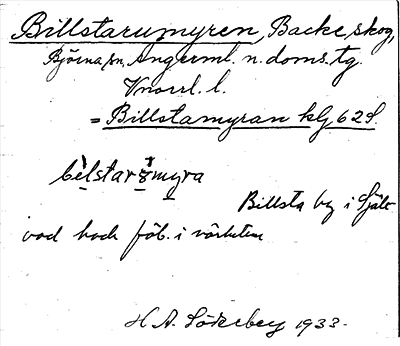 Billstarumyren, Backe, skog,
Björna sn, Ångerml. n. doms. tg.
Vnorrl. l.
= Billstamyran kbl 62 S.
Billsta by i Själe-
vad hade fäb. i närheten
H. A. Söderberg 1933.